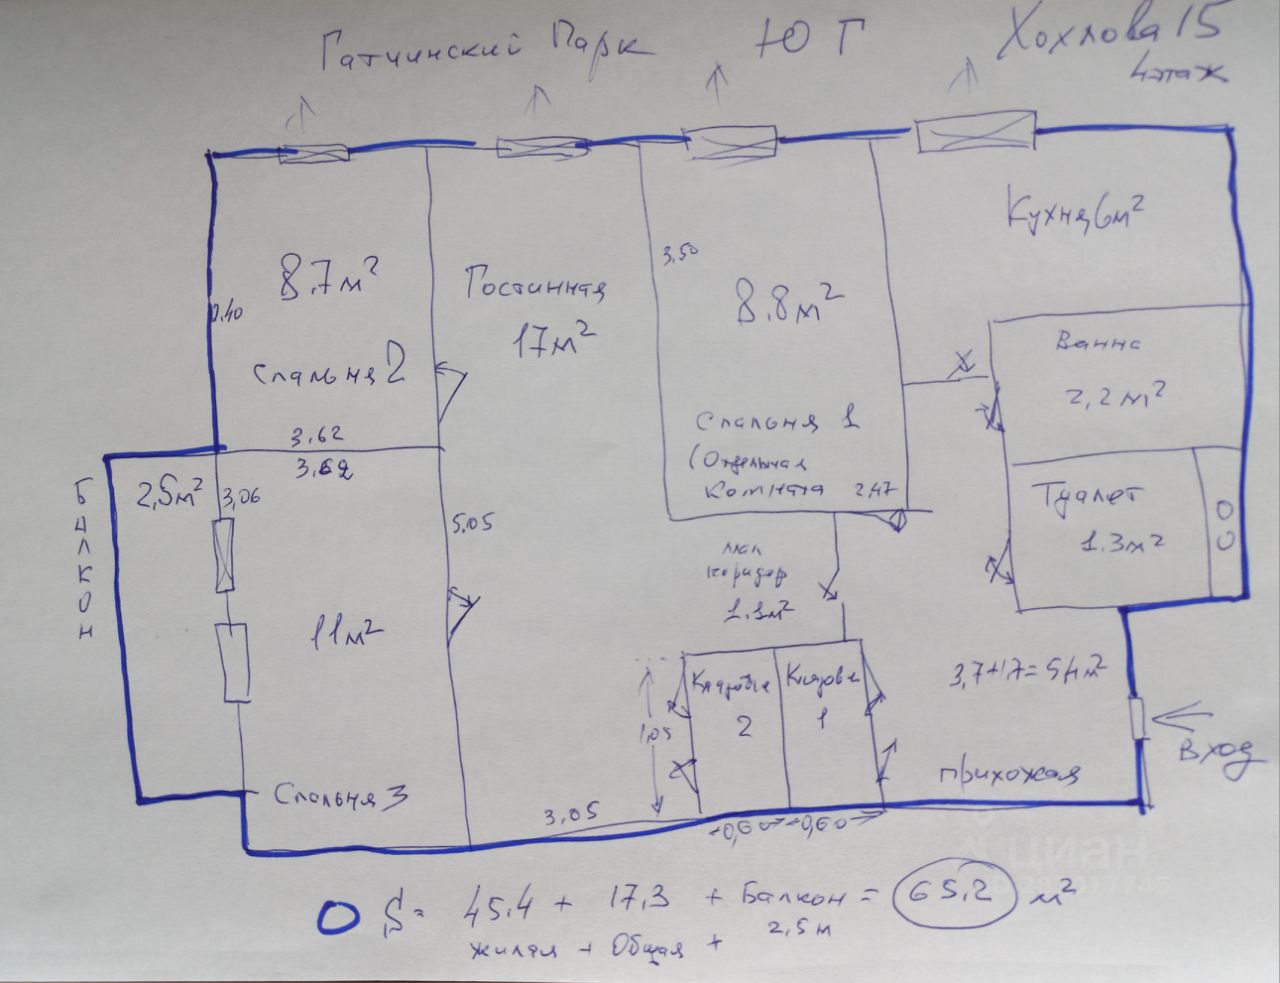 Гатчинский Парк
ЮГ
Хохлова 15
4 этаж
8.7м²
Спальня 2
2.40
3,62
3,62
Гостинная
17м²
3,50
8.8м²
Спальня 1
(Отдельная
комната
2,47
Кухня 6м²
Ванна
2,2 м²
Туалет
1.3м²
Балкон
2,5м²
3,06
5,05
11м²
Спальня 3
коридор
1.1м²
Кладовые
2
Кладовые
1
1,05
3,05
0,60
0,60
прихожая
Вход
циан
S = 45.4 + 17.3 + Балкон = 65,2 м²
жилая + Общая + 2,5м